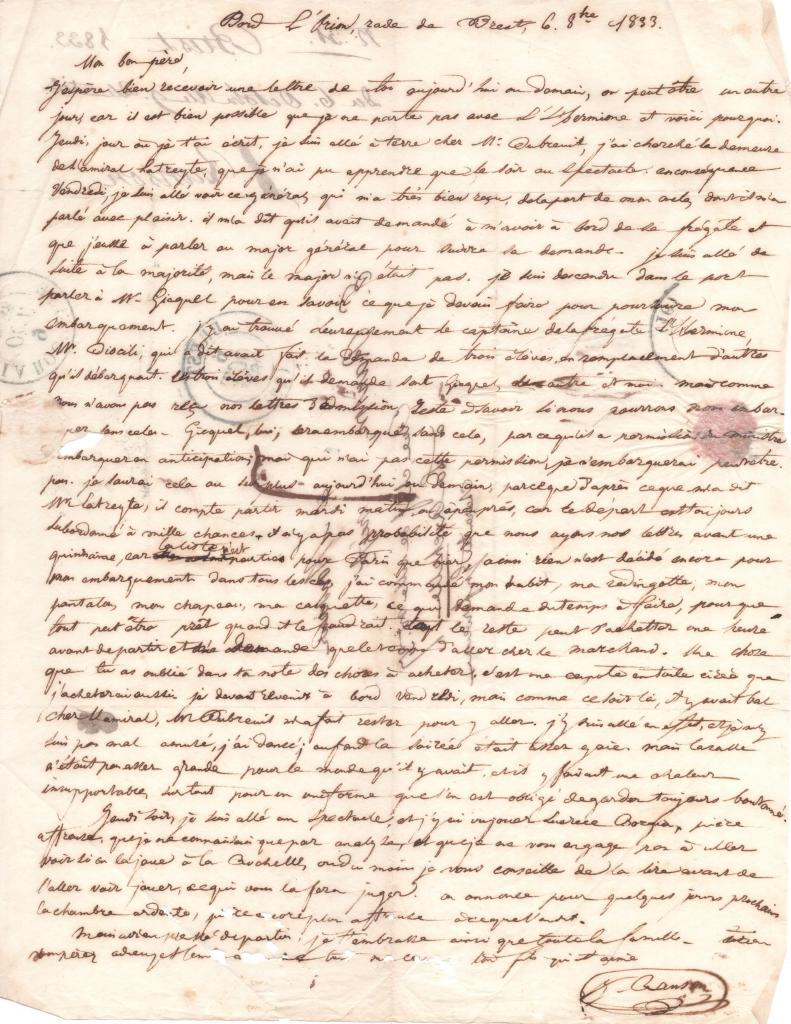 Bord L'Orion, rade de Brest, 6. 8bre 1833.
Mon bon père,
J'espère bien recevoir une lettre de toi aujourd'hui ou demain, ou peut être un autre
jour, car il est bien possible que je ne parte pas avec L'Hermione et voici pourquoi.
Jeudi, jour où je t'ai écrit, je suis allé à terre cher Mr. Dubreuil, j'ai cherché la demeure
de l'amiral Latreyte, que je n'ai pu apprendre que le soir au spectacle. en conséquence
Vendredi, je suis allé voir ce général, qui m'a très bien reçu, de la part de mon oncle, dont il m'a
parlé avec plaisir. il m'a dit qu'il avait demandé à m'avoir à bord de sa frégate et
que j'eusse à parler au major général pour suivre sa demande. je suis allé de
suite à la majorité, mais le major n'y était pas. je suis descendu dans le port
parler à Mr. Gicquel pour en savoir ce que je devais faire pour poursuivre mon
embarquement. j'y ai trouvé heureusement le capitaine de la frégate l'Hermione,
Mr. qui dit avait fait la demande de trois élèves, en remplacement d'autres
qu'il débarquait. les trois élèves qu'il demande sont, Gicquel, autre et moi. mais comme
nous n'avons pas reçu nos lettres d'admission, reste à savoir si nous pourrons embar-
quer sans cela. Gicquel, lui, sera embarqué sans cela, parce qu'il a permission du ministre
d'embarquer en anticipation, moi qui n'ai pas cette permission, je n'embarquerai peut être
pas. je saurai cela au plus aujourd'hui ou demain, parce que d'après ce que m'a dit
Mr. Latreyte, il compte partir mardi matin ou après, car le départ est toujours
subordonné à mille chances. il n'y a pas probabilité que nous ayons nos lettres avant une
quinzaine, car la liste est partie pour Paris que hier, ainsi rien n'est décidé encore pour
mon embarquement. dans tous les cas, j'ai commandé mon habit, ma redingotte, mon
pantalon, mon chapeau, ma casquette, ce qui demande du temps à faire, pour que
tout peut être prêt quand il le faudrait. le reste peut s'achetter une heure
avant de partir et ne demande que le temps d'aller cher le marchand. Une chose
que tu as oublié dans ta note des choses à acheter, c'est une capote en toile cirée que
j'acheterai aussi. je devais revenir à bord vendredi, mais comme ce soir là, il y avait bal
cher l'amiral, Mr Dubreuil m'a fait rester pour y aller. j'y suis allé en effet, et je m'y
suis pas mal amusé, j'ai dansé; au fond la soirée était assez gaie. mais la salle
n'était pas assez grande pour le monde qu'il y avait, et il y faisait une chaleur
insupportable, surtout pour un uniforme que l'on est obligé de garder toujours boutonné.
Jeudi soir, je suis allé au spectacle, et j'y ai vu jouer Lucrèce Borgia, pièce
affreuse, que je ne connaissais que par analyse, et que je ne vous engage pas à aller
voir si on la joue à la Rochelle, ou du moins je vous conseille de la lire avant de
l'aller voir jouer, ce qui vous la fera juger. on annonce pour quelques jours prochains
la chambre ardente, pièce encore plus affreuse à ce que l'on dit.
Mais je t'embrasse ainsi que toute la famille.
ton fils qui t'aime
Ranson